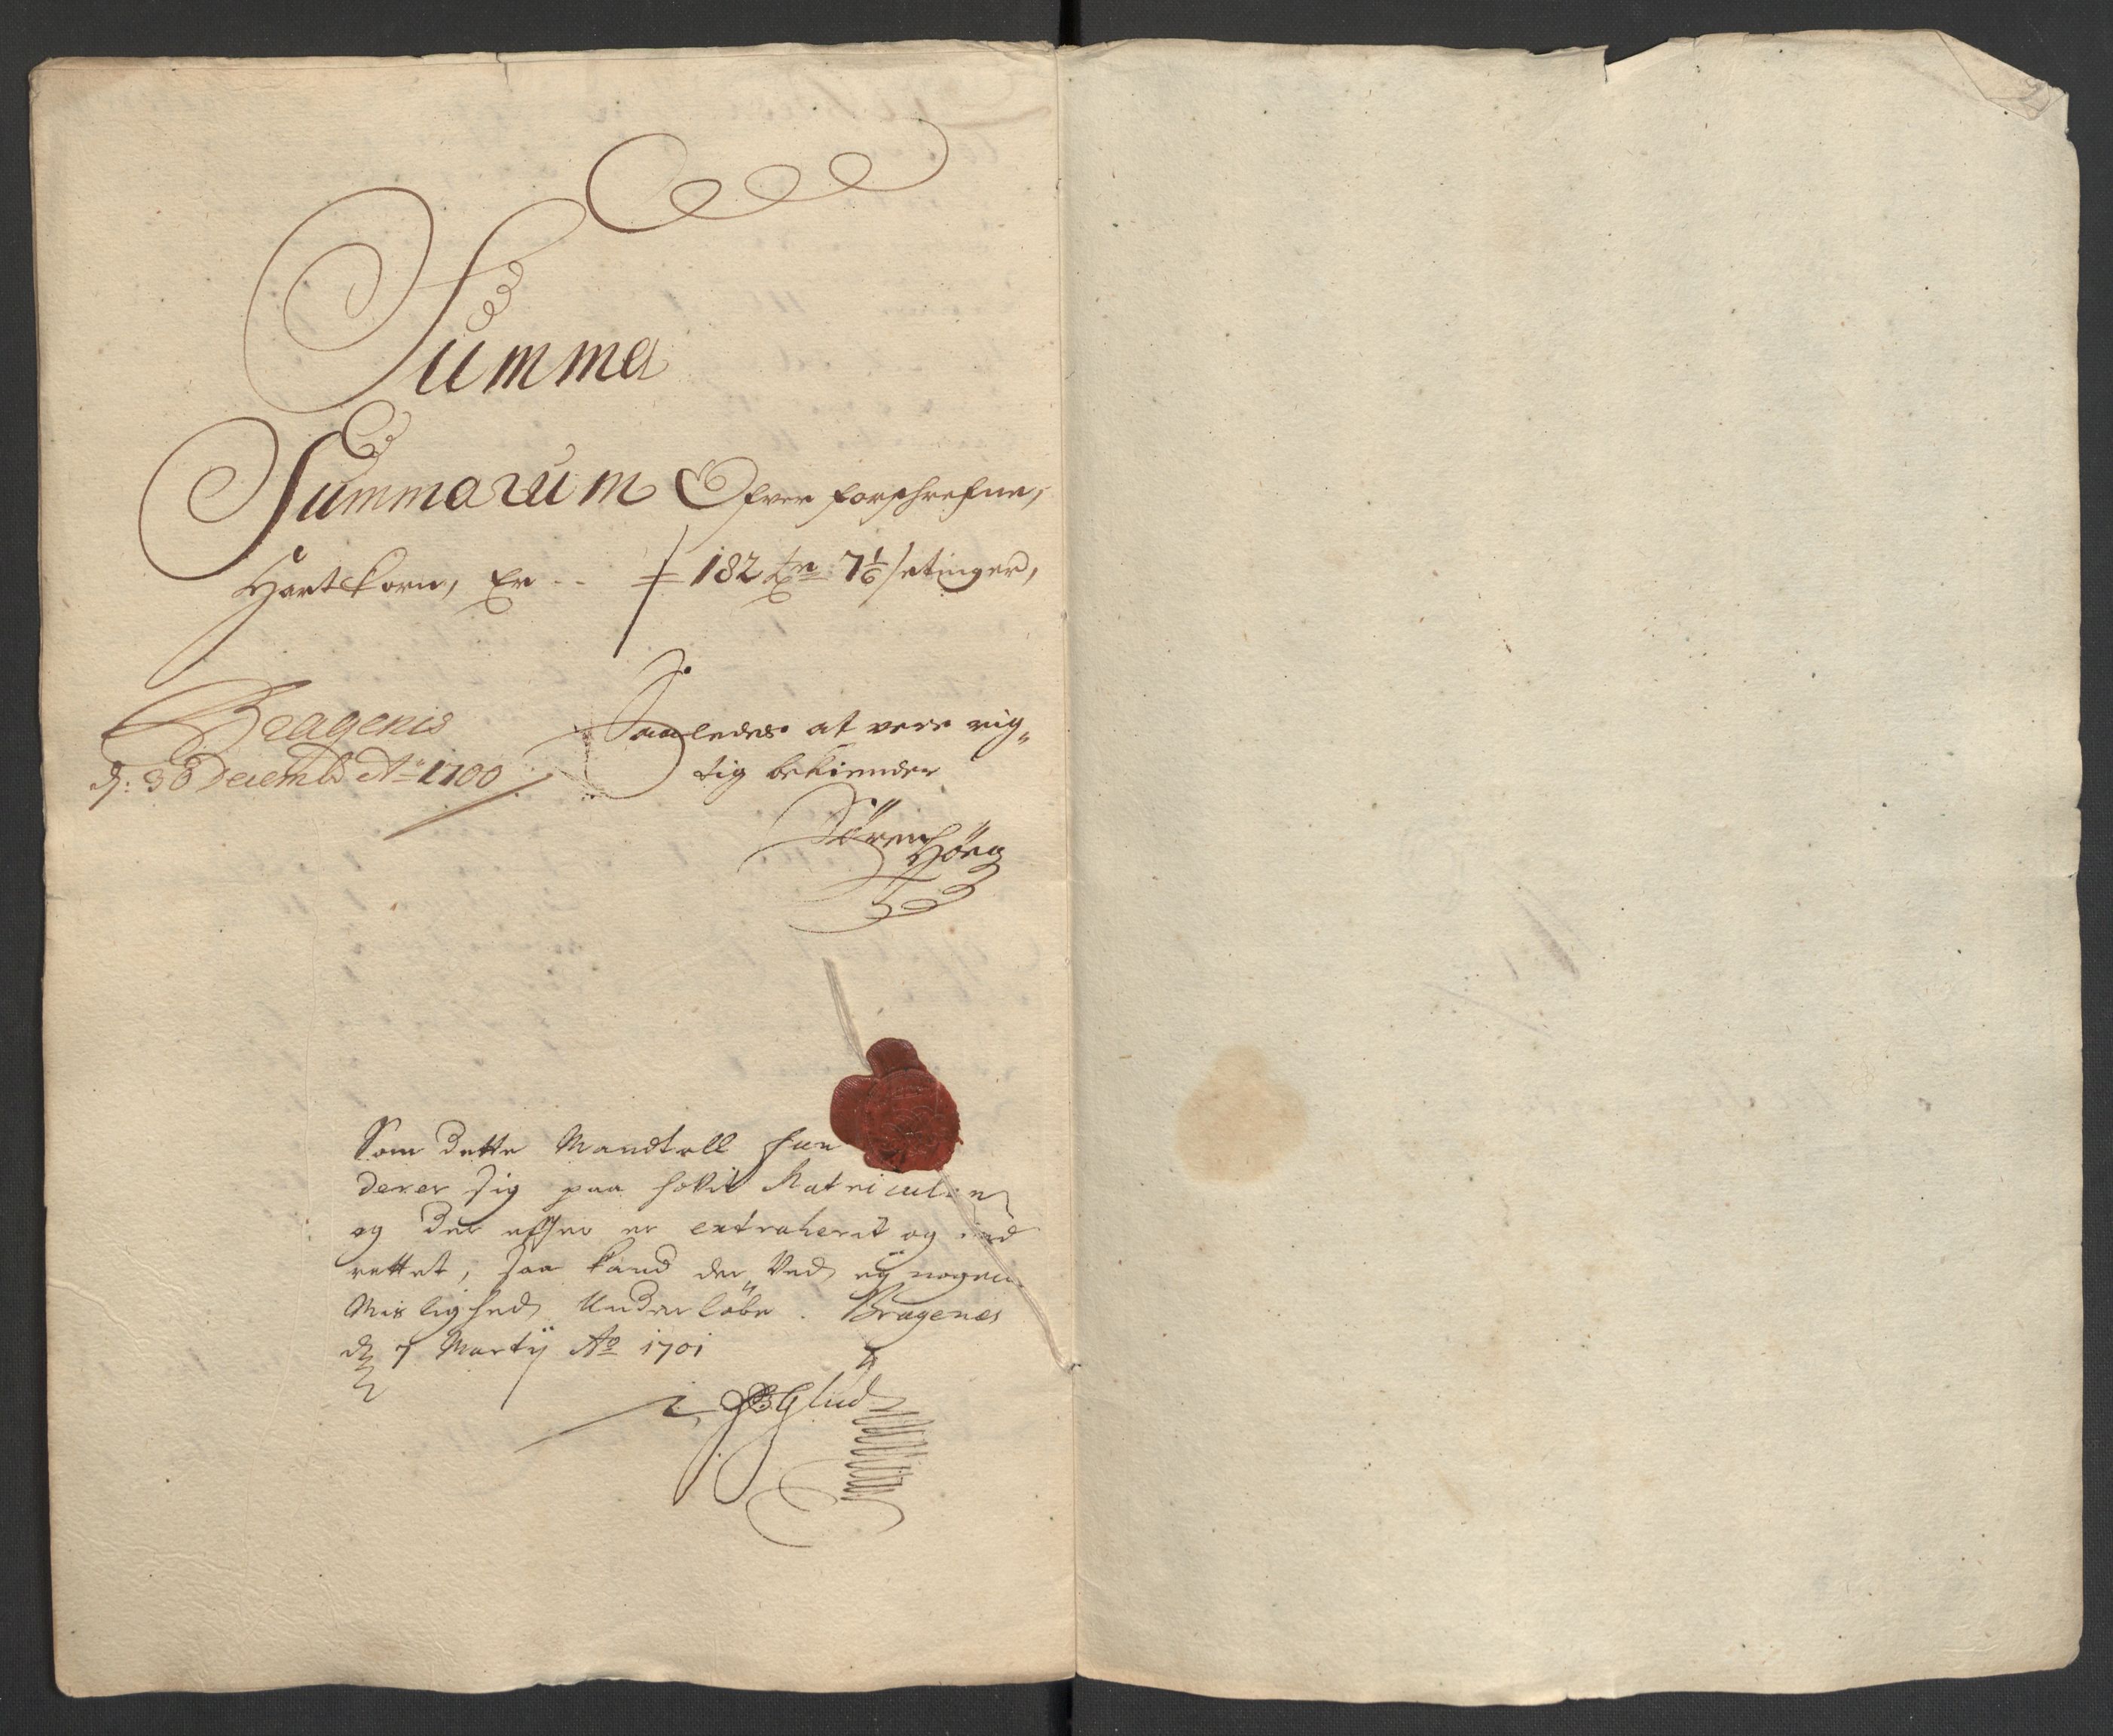 Summa
Summarum Ofver forschrefne,
Hartkorn, Er -- 182 tn 7 1/6 setinger,
Bragenis
d: 30 Decembr Ao 1700
Saaledes at vere rig„
tig bekiender
Sören Hörg
Som dette Mandtall fun
derer sig paa
og der effter er extraherit og ind
rettet, saa kand der Ved ey nogen
Mislighed Underløbe. Bragenes
d 7 Martij Ao 1701
Glud